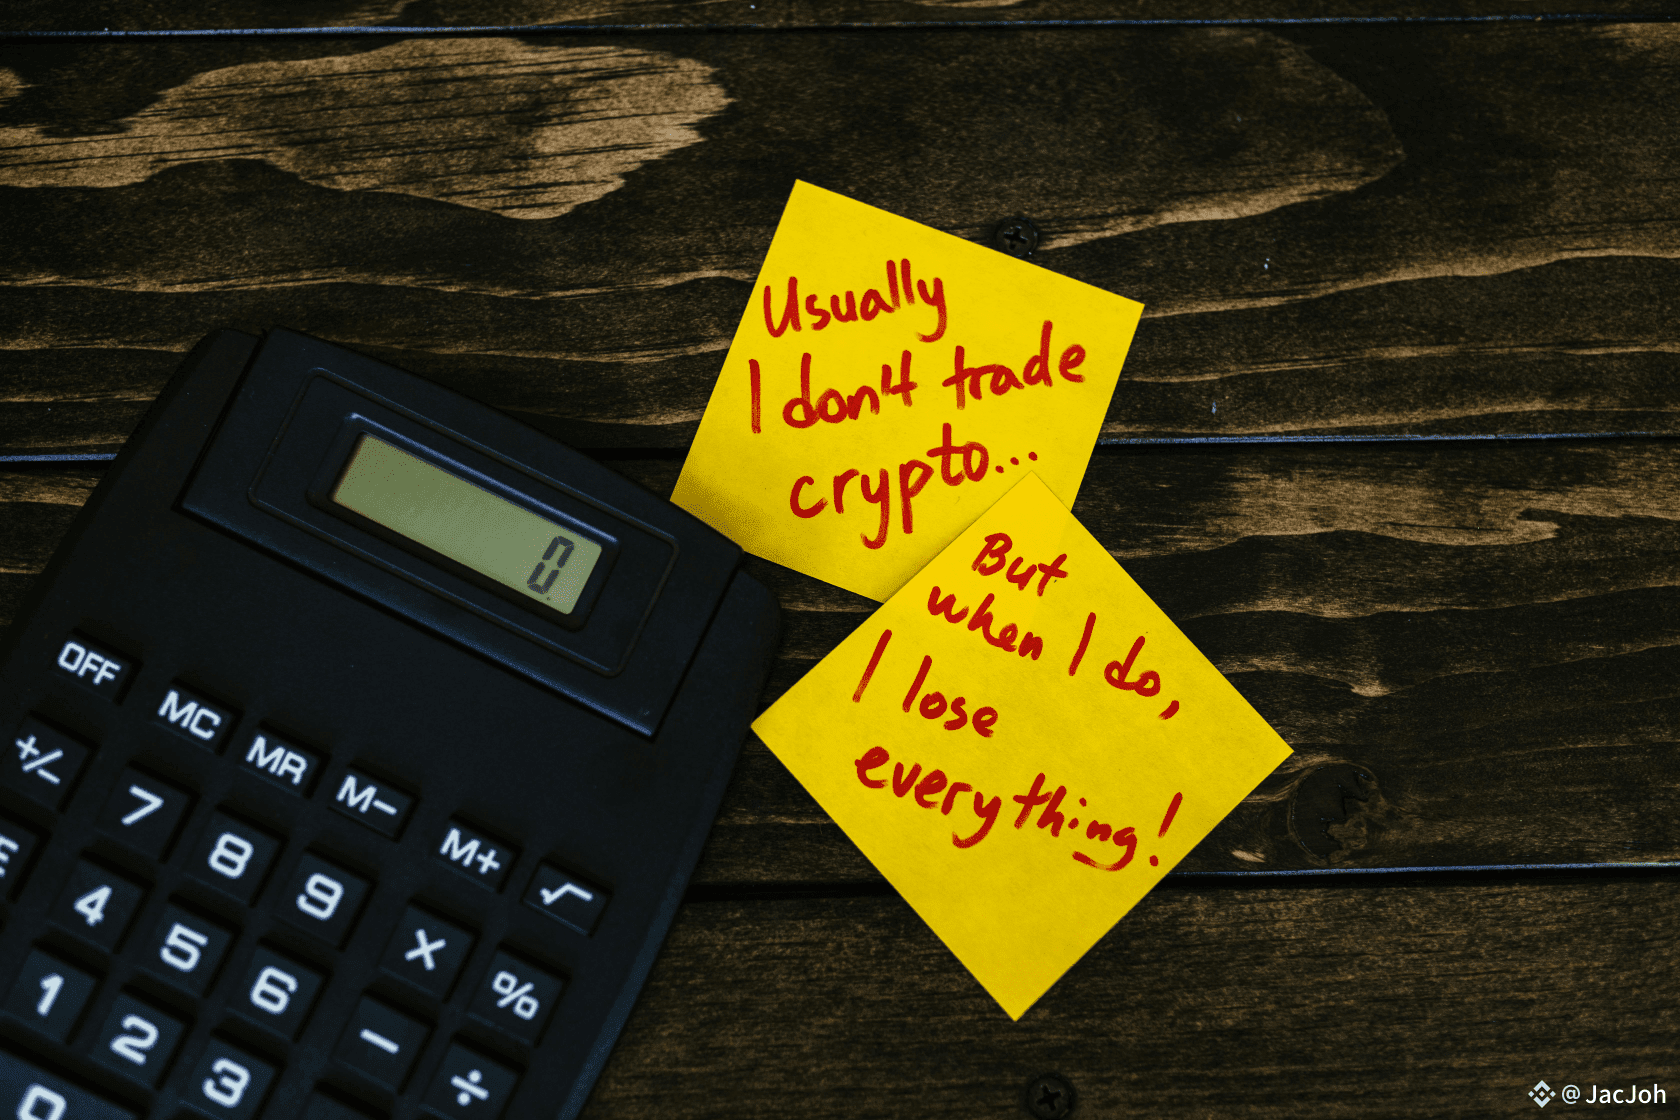 Usually
I don4 trade
crypto...
But
when I do,
I lose
everything!
0
OFF
MC
MR
M−
M+
√
+/−
7
8
9
4
5
6
X
%
1
2
3
−
÷
0
@ JacJoh